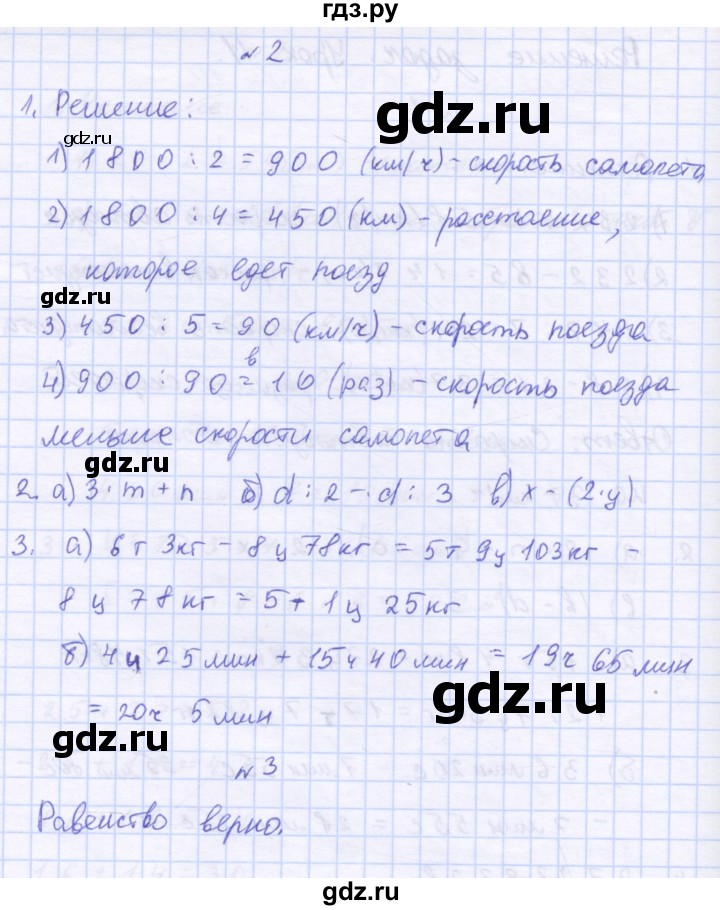 гдз.ру
№ 2
1. Решение:
gdz.ru
gdz.ru
1) 1800 : 2 = 900 (км/ч) - скорость самолета
2) 1800 : 4 = 450 (км) - расстояние,
которое едет поезд
gdz.ru
3) 450 : 5 = 90 (км/ч) - скорость поезда
4) 900 : 90 = в 10 (раз) - скорость поезда
меньше скорости самолета
gdz.ru
2. а) 3·m + n б) d : 2 - d : 3 в) x - (2·y)
3. а) 6т 3кг - 8ц 78кг = 5т 9ц 103кг -
8ц 78кг = 5т 1ц 25кг
б) 4ч 25мин + 15ч 40мин = 19ч 65мин
gdz.ru
= 20ч 5мин
gdz.ru
№ 3
Равенство верно.
gdz.ru